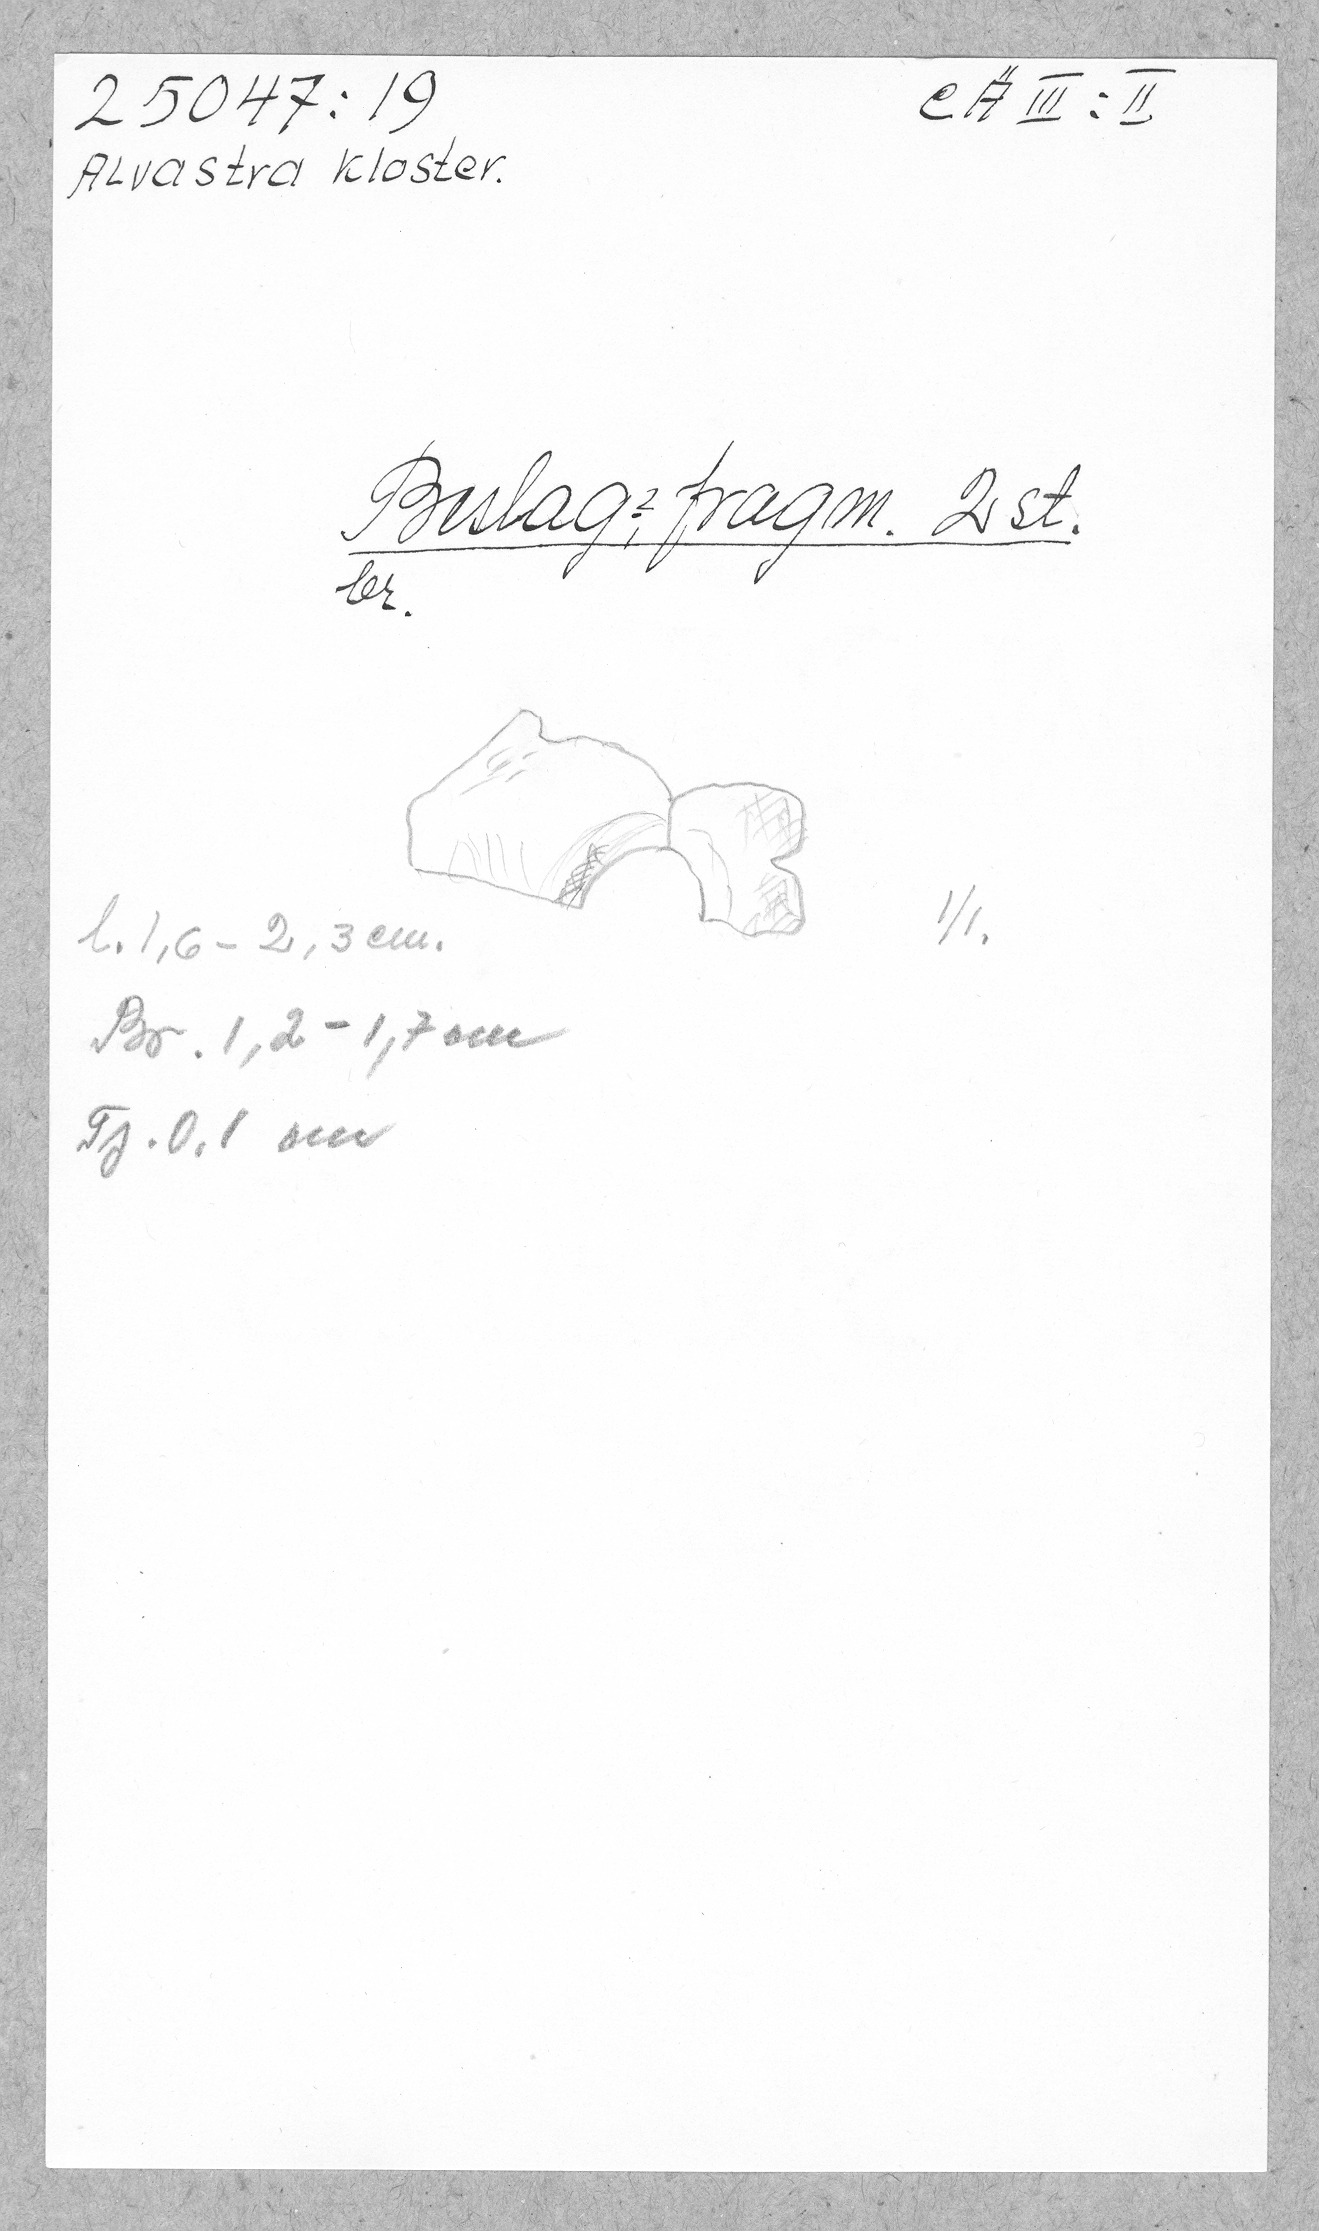 25047:19
eÄ III:II
Alvastra kloster.
Beslag?, fragm. 2 st.
br.
l. 1,6 – 2,3 cm.
1/1.
Br. 1,2 – 1,7 cm
Tj. 0,1 cm